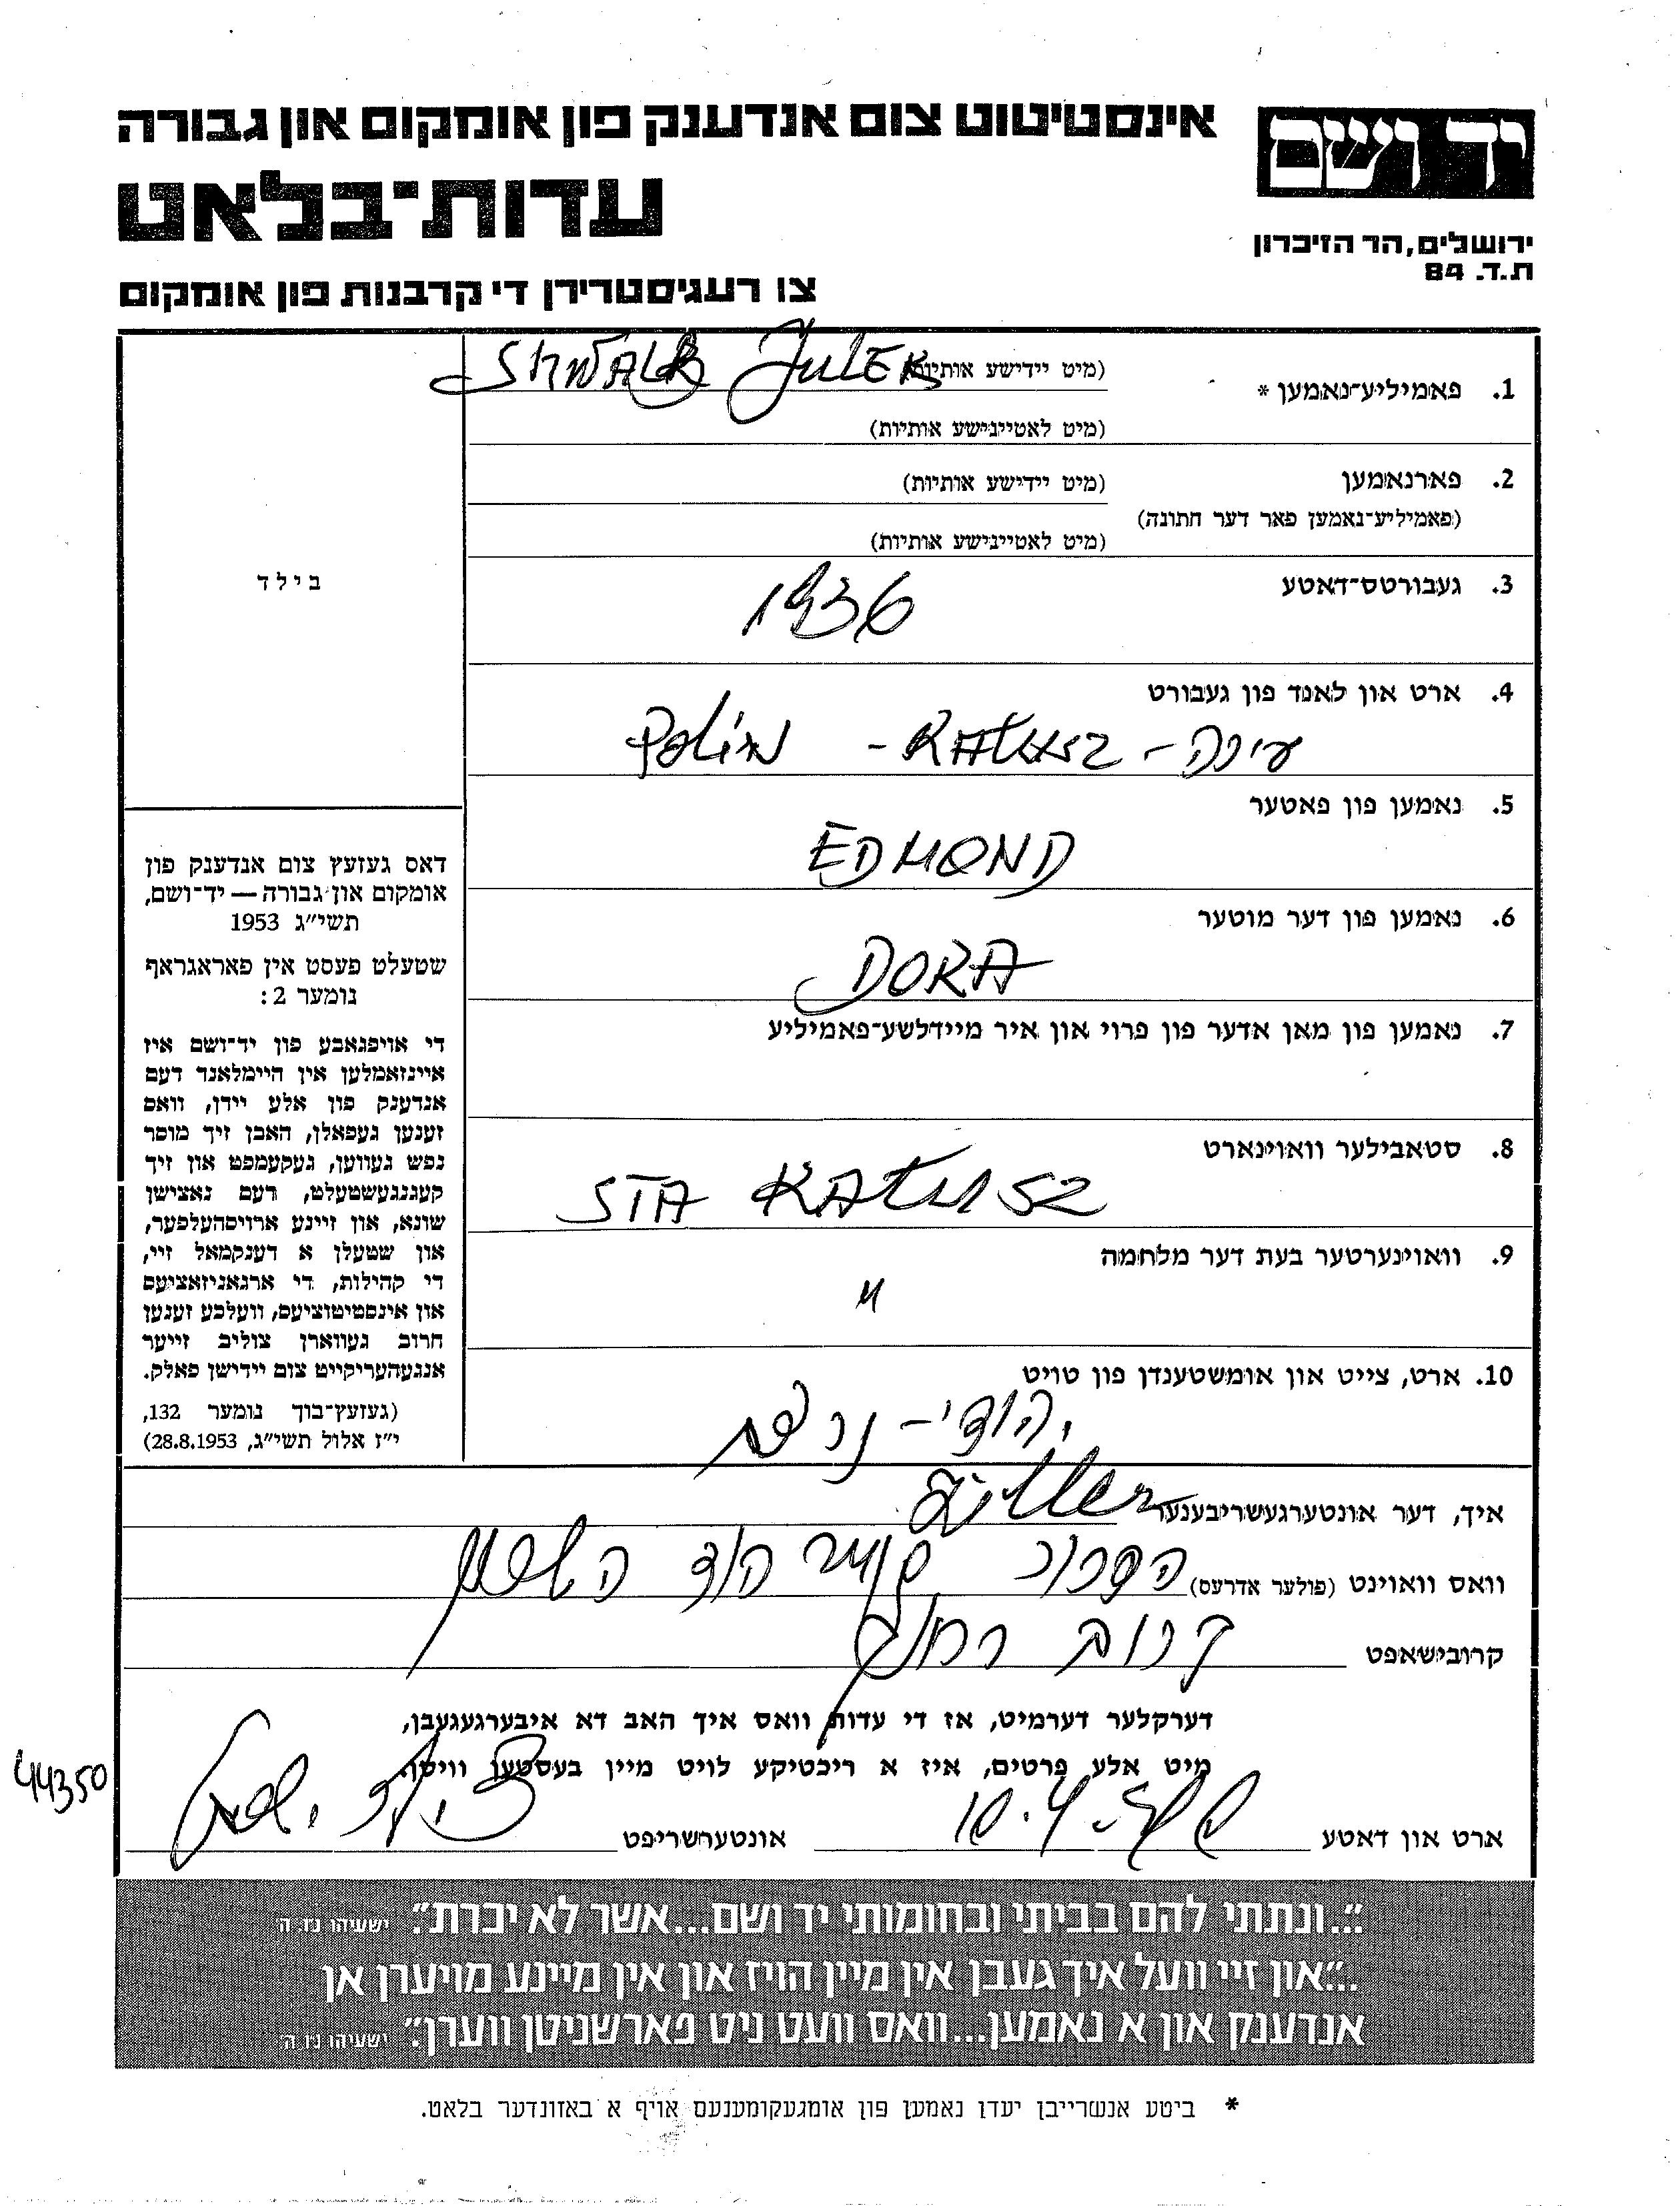 אינסטיטוט צום אנדענק פון אומקום און גבורה
יד ושם
עדות־בלאט
ירושלים, הר הזיכרון
ת.ד. 84
צו רעגיסטרירן די קרבנות פון אומקום
1. פאמיליע־נאמען * (מיט יידישע אותיות) SHWALB JULEK
(מיט לאטיינישע אותיות)
2. פארנאמען (מיט יידישע אותיות)
(פאמיליע־נאמען פאר דער חתונה)
(מיט לאטיינישע אותיות)
בילד
3. געבורטס־דאטע
1936
4. ארט און לאנד פון געבורט
פולין Polin - KATUSZ -
5. נאמען פון פאטער
EDMOND
6. נאמען פון דער מוטער
DORA
7. נאמען פון מאן אדער פון פרוי און איר מיידלשע־פאמיליע
8. סטאבילער וואוינארט
STA KATUSZ
9. וואוינערטער בעת דער מלחמה
"
10. ארט, צייט און אומשטענדן פון טויט
יהודי -
דאס געזעץ צום אנדענק פון
אומקום און גבורה — יד־ושם,
תשי״ג 1953
שטעלט פעסט אין פאראגראף
נומער 2:
די אויפגאבע פון יד־ושם איז
איינזאמלען אין היימלאנד דעם
אנדענק פון אלע יידן, וואס
זענען געפאלן, האבן זיך מוסר
נפש געווען, געקעמפט און זיך
קעגנגעשטעלט, דעם נאצישן
שונא, און זיינע ארויסהעלפער,
און שטעלן א דענקמאל זיי,
די קהילות, די ארגאניזאציעס
און אינסטיטוציעס, וועלכע זענען
חרוב געווארן צוליב זייער
אנגעהעריקייט צום יידישן פאלק.
(געזעץ־בוך נומער 132,
י״ז אלול תשי״ג, 28.8.1953)
איך, דער אונטערגעשריבענער
וואס וואוינט (פולער אדרעס) הוד השרון
קרובישאפט קרוב רחוק
דערקלער דערמיט, אז די עדות וואס איך האב דא איבערגעגעבן,
מיט אלע פרטים, איז א ריכטיקע לויט מיין בעסטען וויסן.
44350
ארט און דאטע 10.4. אונטערשריפט
"...ונתתי להם בביתי ובחומותי יד ושם...אשר לא יכרת". ישעיהו נ״ו ה׳
"...און זיי וועל איך געבן אין מיין הויז און אין מיינע מויערן אן
אנדענק און א נאמען...וואס וועט ניט פארשניטן ווערן". ישעיהו נ״ו ה׳
* ביטע אנשרייבן יעדן נאמען פון אומגעקומענעם אויף א באזונדער בלאט.